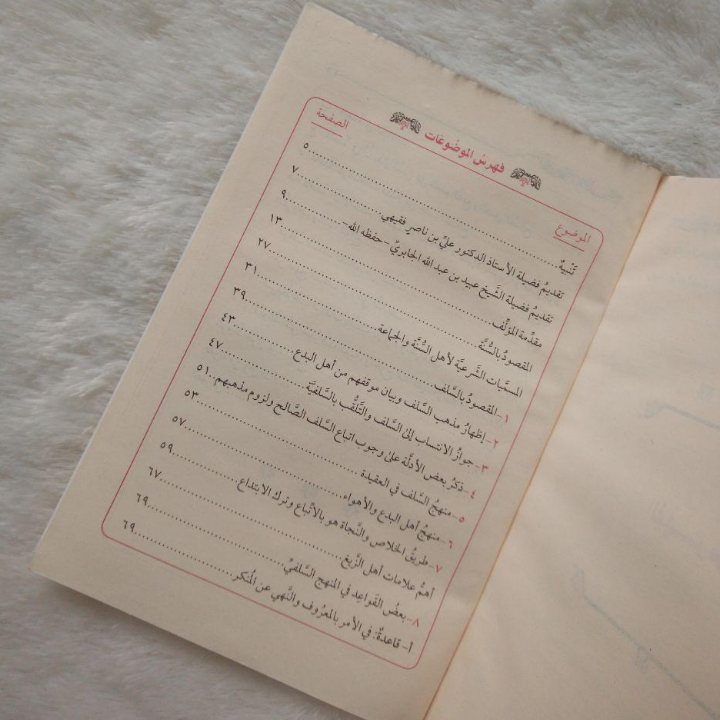 فهرسُ الموضُوعَات
الموضوع الصفحة
تَنْبِيهٌ...........................٥
تقديمُ فضيلة الأستاذ الدكتور عليِّ بن ناصرٍ فقيهي...........٧
تقديمُ فضيلة الشَّيخ عبيد بن عبد الله الجابريِّ -حفظه الله-...........٩
مقدِّمة المؤلِّف...........................١٣
المقصودُ بالسُّنَّة...........................٢٧
المسمَّيات الشَّرعيَّة لأهل السُّنَّة والجماعة...........................٣١
١- المقصودُ بالسَّلف...........................٣٩
٢- إظهارُ مذهب السَّلف وبيان موقفهم من أهل البدع...........٤٣
٣- جوازُ الانتساب إلىٰ السَّلف والتَّلقُّب بالسَّلفيَّة...........٤٧
٤- ذكرُ بعض الأدلَّة علىٰ وجوب اتباع السَّلف الصَّالح ولزوم مذهبهم..٥١
٥- منهجُ السَّلف في العقيدة...........................٥٣
٦- منهجُ أهل البدع والأهواء...........................٥٧
٧- طريقُ الخلاص والنَّجاة هو بالاتِّباع وترك الابتداع...........٥٩
أهمُّ علامات أهل الزَّيغ...........................٦٧
٨- بعضُ القَواعِد في المنهج السَّلفيِّ...........................٦٩
أ- قاعدةٌ: في الأمر بالمعرُوف والنَّهي عن المُنكَر...........٦٩